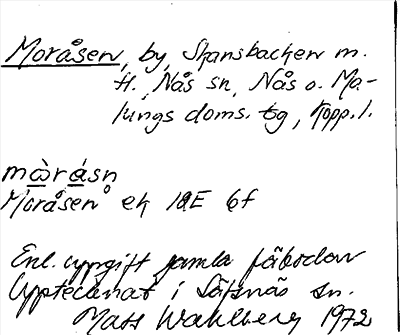 Moråsen, by, Skansbacken m.
fl., Nås sn, Nås o. Ma-
lungs doms. tg, Kopp. l.
mɷ̀rásn
Moråsen ek 12E 6f
Enl. uppgift gamla fäbodar
Upptecknat i Säfsnäs sn.
Mats Wahlberg 1972